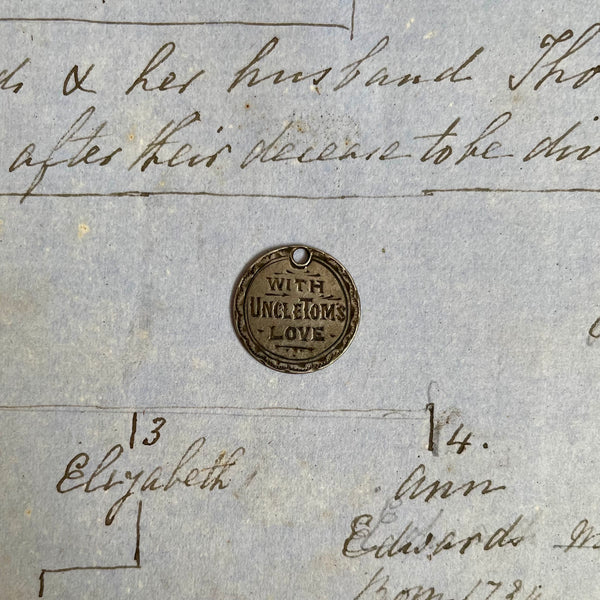 & her husband Tho
after their decease to be div
WITH
UNCLE TOM'S
LOVE
3
4.
Elizabeth
Ann
Edwards
Born 1734